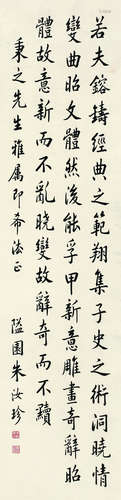 若夫鎔鑄經典之範翔集子史之術洞曉情
變曲昭文體然後能孚甲新意雕畫奇辭昭
體故意新而不亂曉變故辭奇而不黷
秉之先生雅屬即希法正
隘園朱汝珍